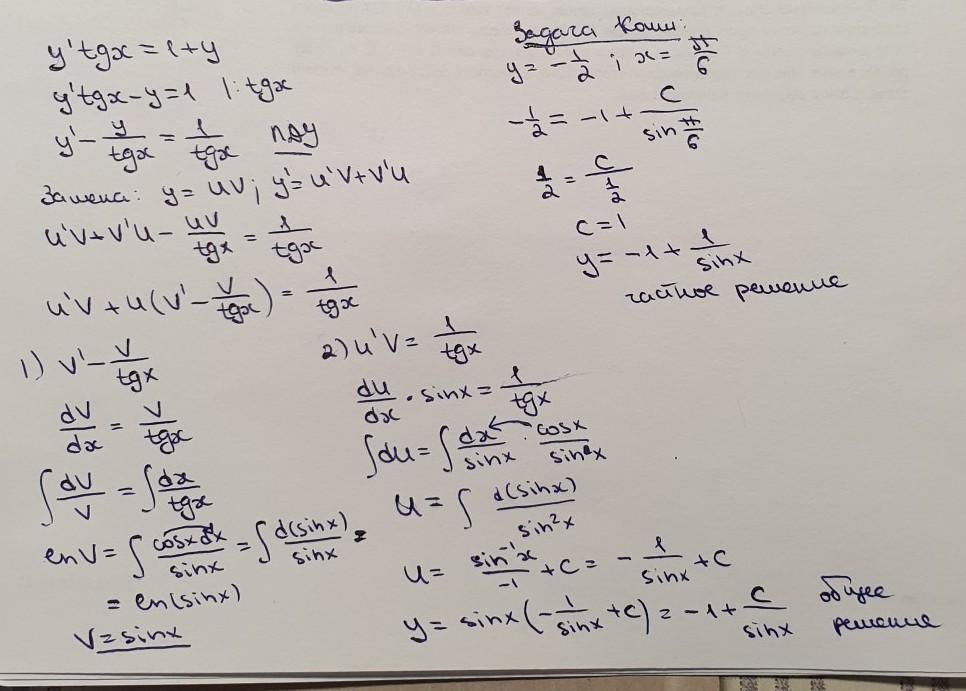 y'tgx = 1+y
y'tgx-y=1 |:tgx
y' - y/tgx = 1/tgx ЛДУ
Замена: y= UV; y'= U'V+V'U
U'V+V'U - UV/tgx = 1/tgx
U'V + U(V' - V/tgx) = 1/tgx
1) V' - V/tgx
dV/dx = V/tgx
∫ dV/V = ∫ dx/tgx
lnV = ∫ cosxdx/sinx = ∫ d(sinx)/sinx =
= ln(sinx)
V = sinx
2) U'V = 1/tgx
dU/dx · sinx = 1/tgx
∫dU = ∫ dx/sinx · cosx/sin²x
U = ∫ d(sinx)/sin²x
U = sin⁻¹x/-1 + C = - 1/sinx + C
y = sinx(- 1/sinx + C) = -1 + C/sinx общее решение
Задача Коши:
y = - 1/2 ; x = π/6
- 1/2 = -1 + C/sin π/6
1/2 = C/ 1/2
C = 1
y = -1 + 1/sinx
частное решение